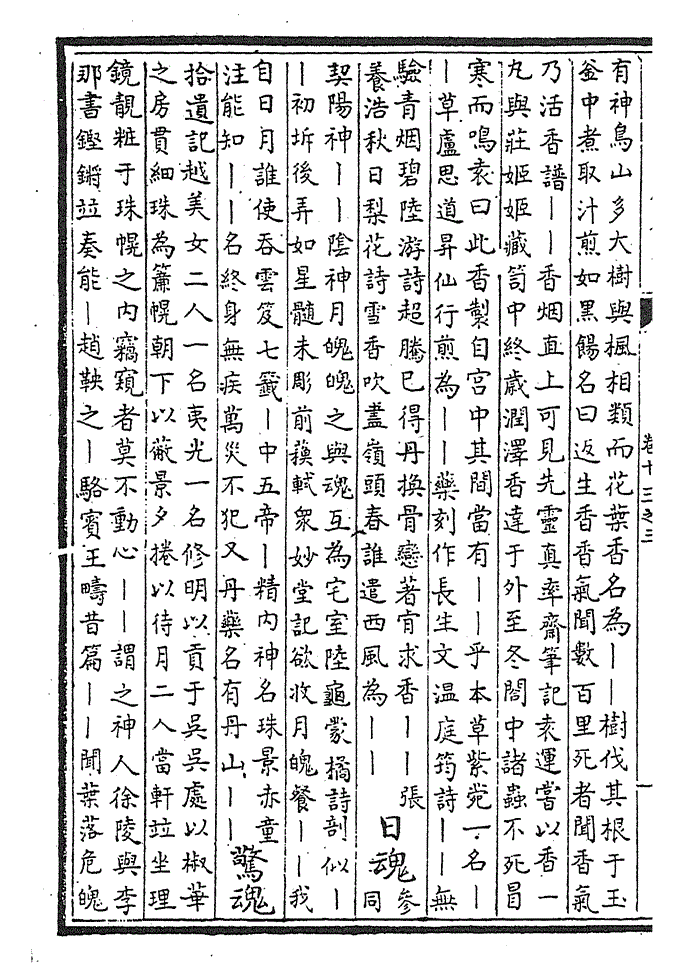 有神鳥山多大樹與楓相類而花葉香名為——樹伐其根于玉
釜中煮取汁煎如黑餳名曰返生香香氣聞數百里死者聞香氣
乃活香譜——香烟直上可見先靈真率齋筆記袁運嘗以香一
丸與莊姬姬藏笥中終歲潤澤香達于外至冬閤中諸蟲不死冒
寒而鳴袁曰此香製自宮中其間當有——乎本草紫菀一名—
—草盧思道昇仙行煎為——藥刻作長生文温庭筠詩——無
驗青烟碧陸游詩超騰已得丹換骨戀著肯求香——張
養浩秋日梨花詩雪香吹盡嶺頭春誰遣西風為——
日魂
參
同
契陽神——陰神月魄魄之與魂互為宅室陸龜蒙橘詩剖似—
—初坼後弄如星髓未彫前蘇軾衆妙堂記欲收月魄餐——我
自日月誰使吞雲笈七籤—中五帝—精内神名珠景赤童
注能知——名終身無疾萬災不犯又丹藥名有丹山——
驚魂
拾遺記越美女二人一名夷光一名修明以貢于吳吳處以椒華
之房貫細珠為簾幌朝下以蔽景夕捲以待月二人當軒竝坐理
鏡靚粧于珠幌之内竊窺者莫不動心——謂之神人徐陵與李
那書鏗鏘竝奏能—趙鞅之—駱賓王疇昔篇——聞葉落危魄
卷十三之三